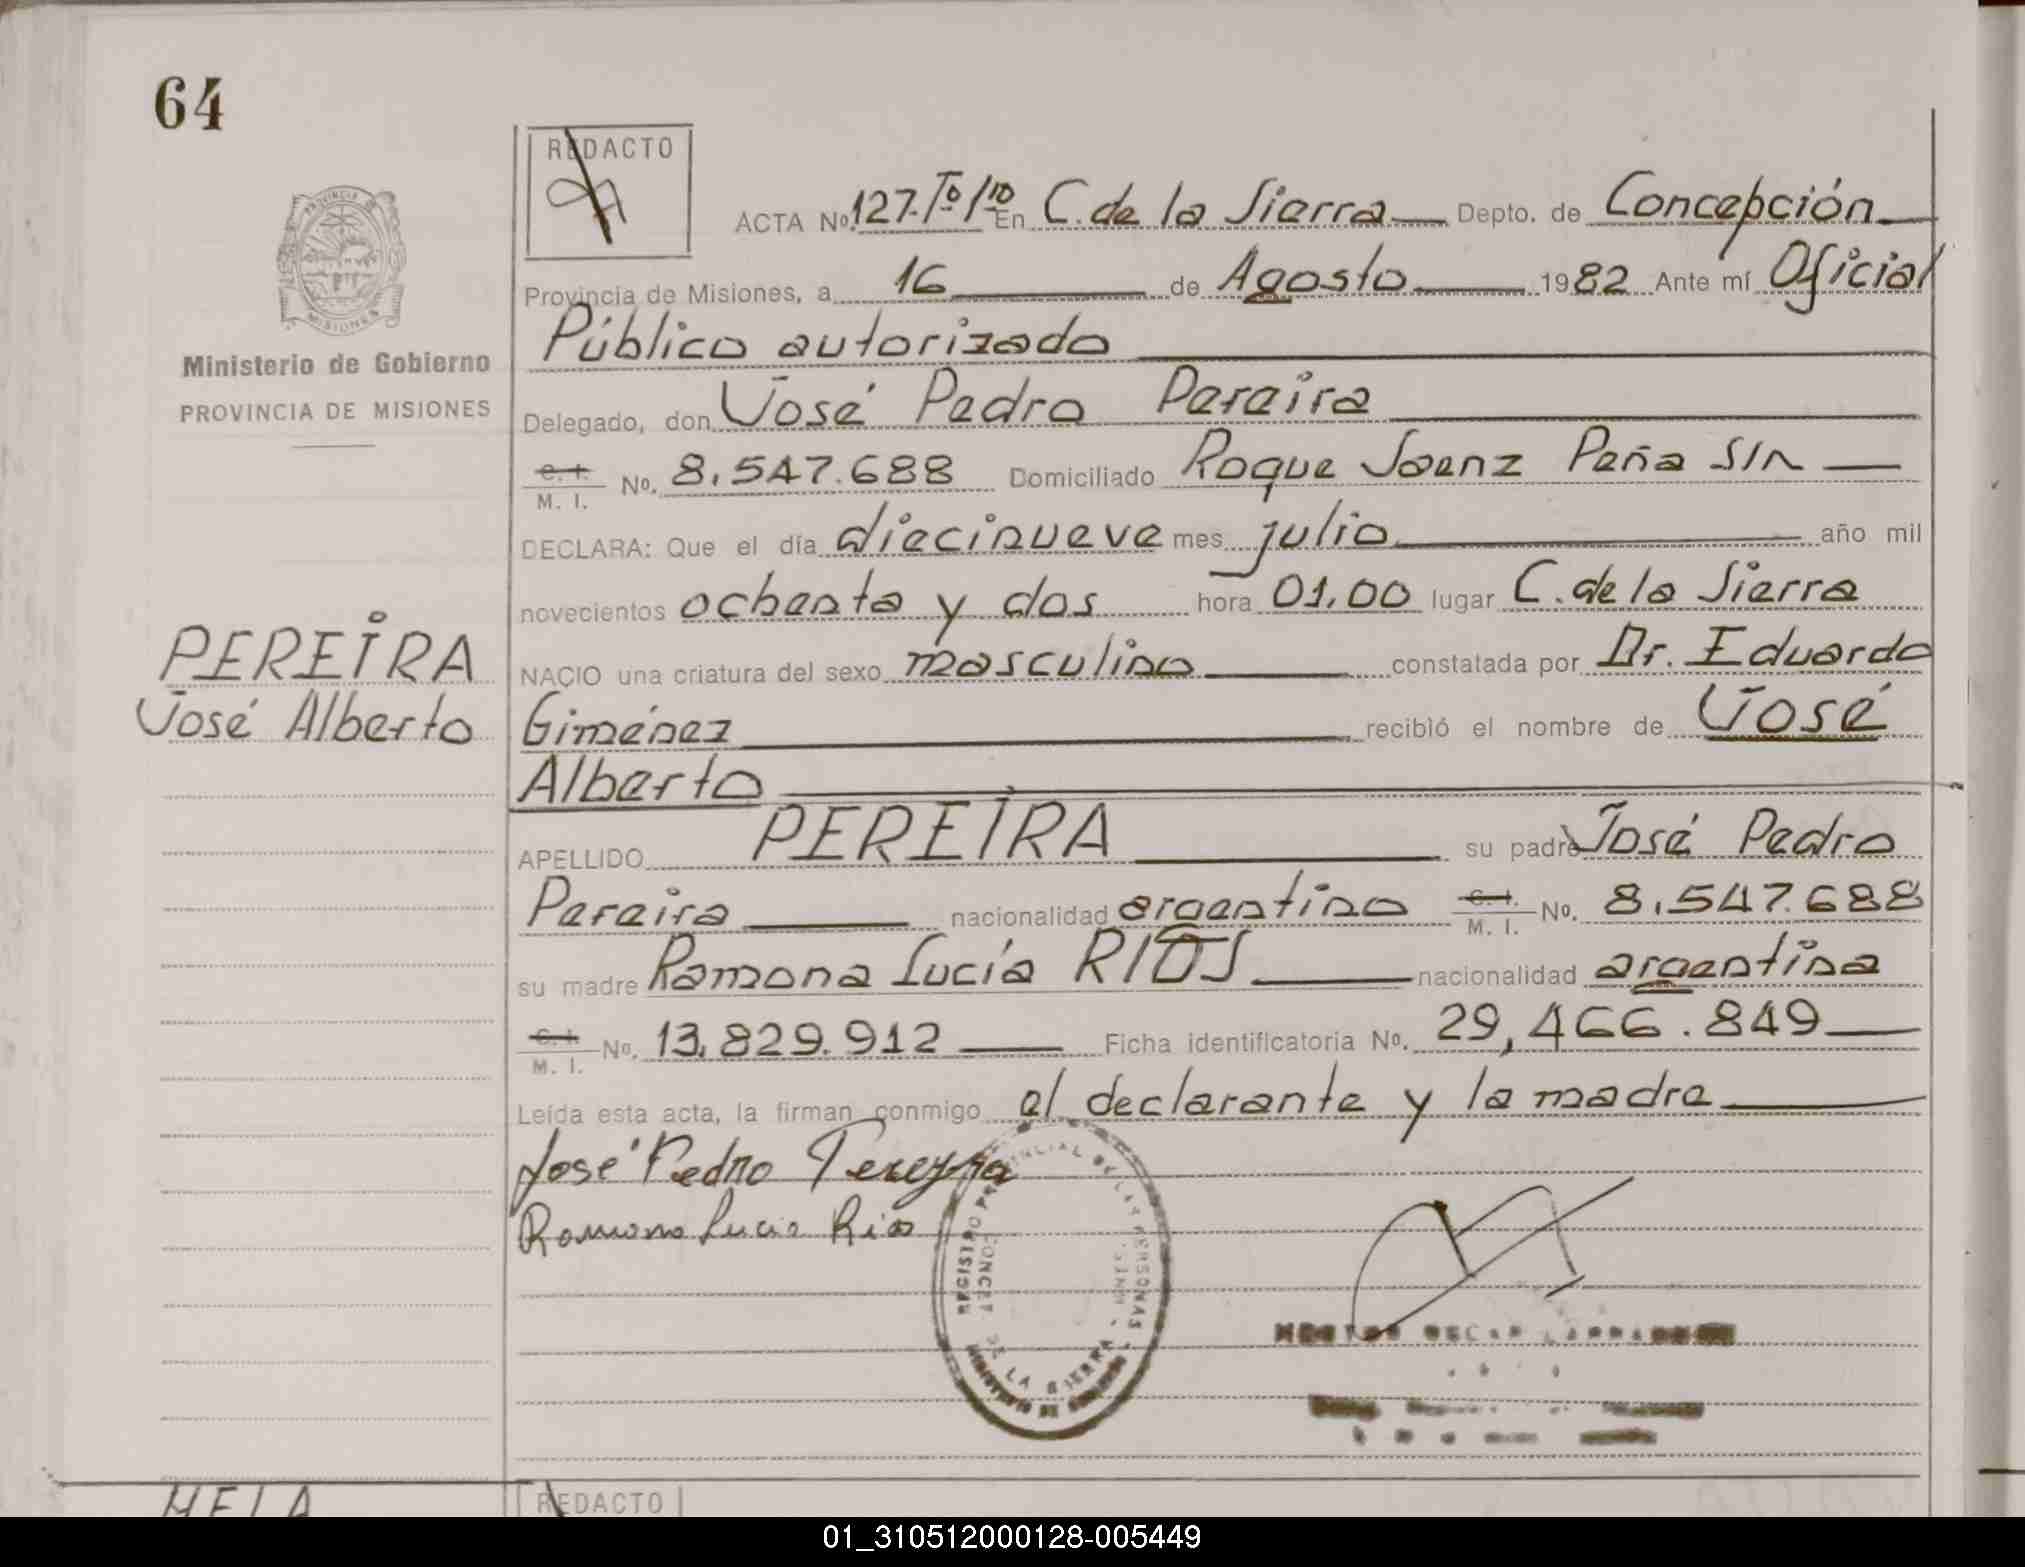 64
REDACTO
PROVINCIA DE
MISIONES
Ministerio de Gobierno
PROVINCIA DE MISIONES
PEREIRA
José Alberto
ACTA No. 127.Tº/10 En C. de la Sierra Depto. de Concepción
Provincia de Misiones, a 16 de Agosto 1982 Ante mí Oficial
Público autorizado
Delegado, don José Pedro Pereira
C. I. M. I. No. 8.547.688 Domiciliado Roque Saenz Peña S/N
DECLARA: Que el día diecinueve mes julio año mil
novecientos ochenta y dos hora 01,00 lugar C. de la Sierra
NACIO una criatura del sexo masculino constatada por Dr. Eduardo
Giménez recibió el nombre de José
Alberto
APELLIDO PEREIRA su padre José Pedro
Pereira nacionalidad argentino C. I. M. I. No. 8.547.688
su madre Ramona Lucía RIOS nacionalidad argentina
C. I. M. I. No. 13.829.912 Ficha identificatoria No. 29,466.849
Leída esta acta, la firman conmigo el declarante y la madre
José Pedro Pereyra
Ramona Lucia Rios
REGISTRO PROVINCIAL DE LAS PERSONAS
DE LA SIERRA
REDACTO
01_310512000128-005449